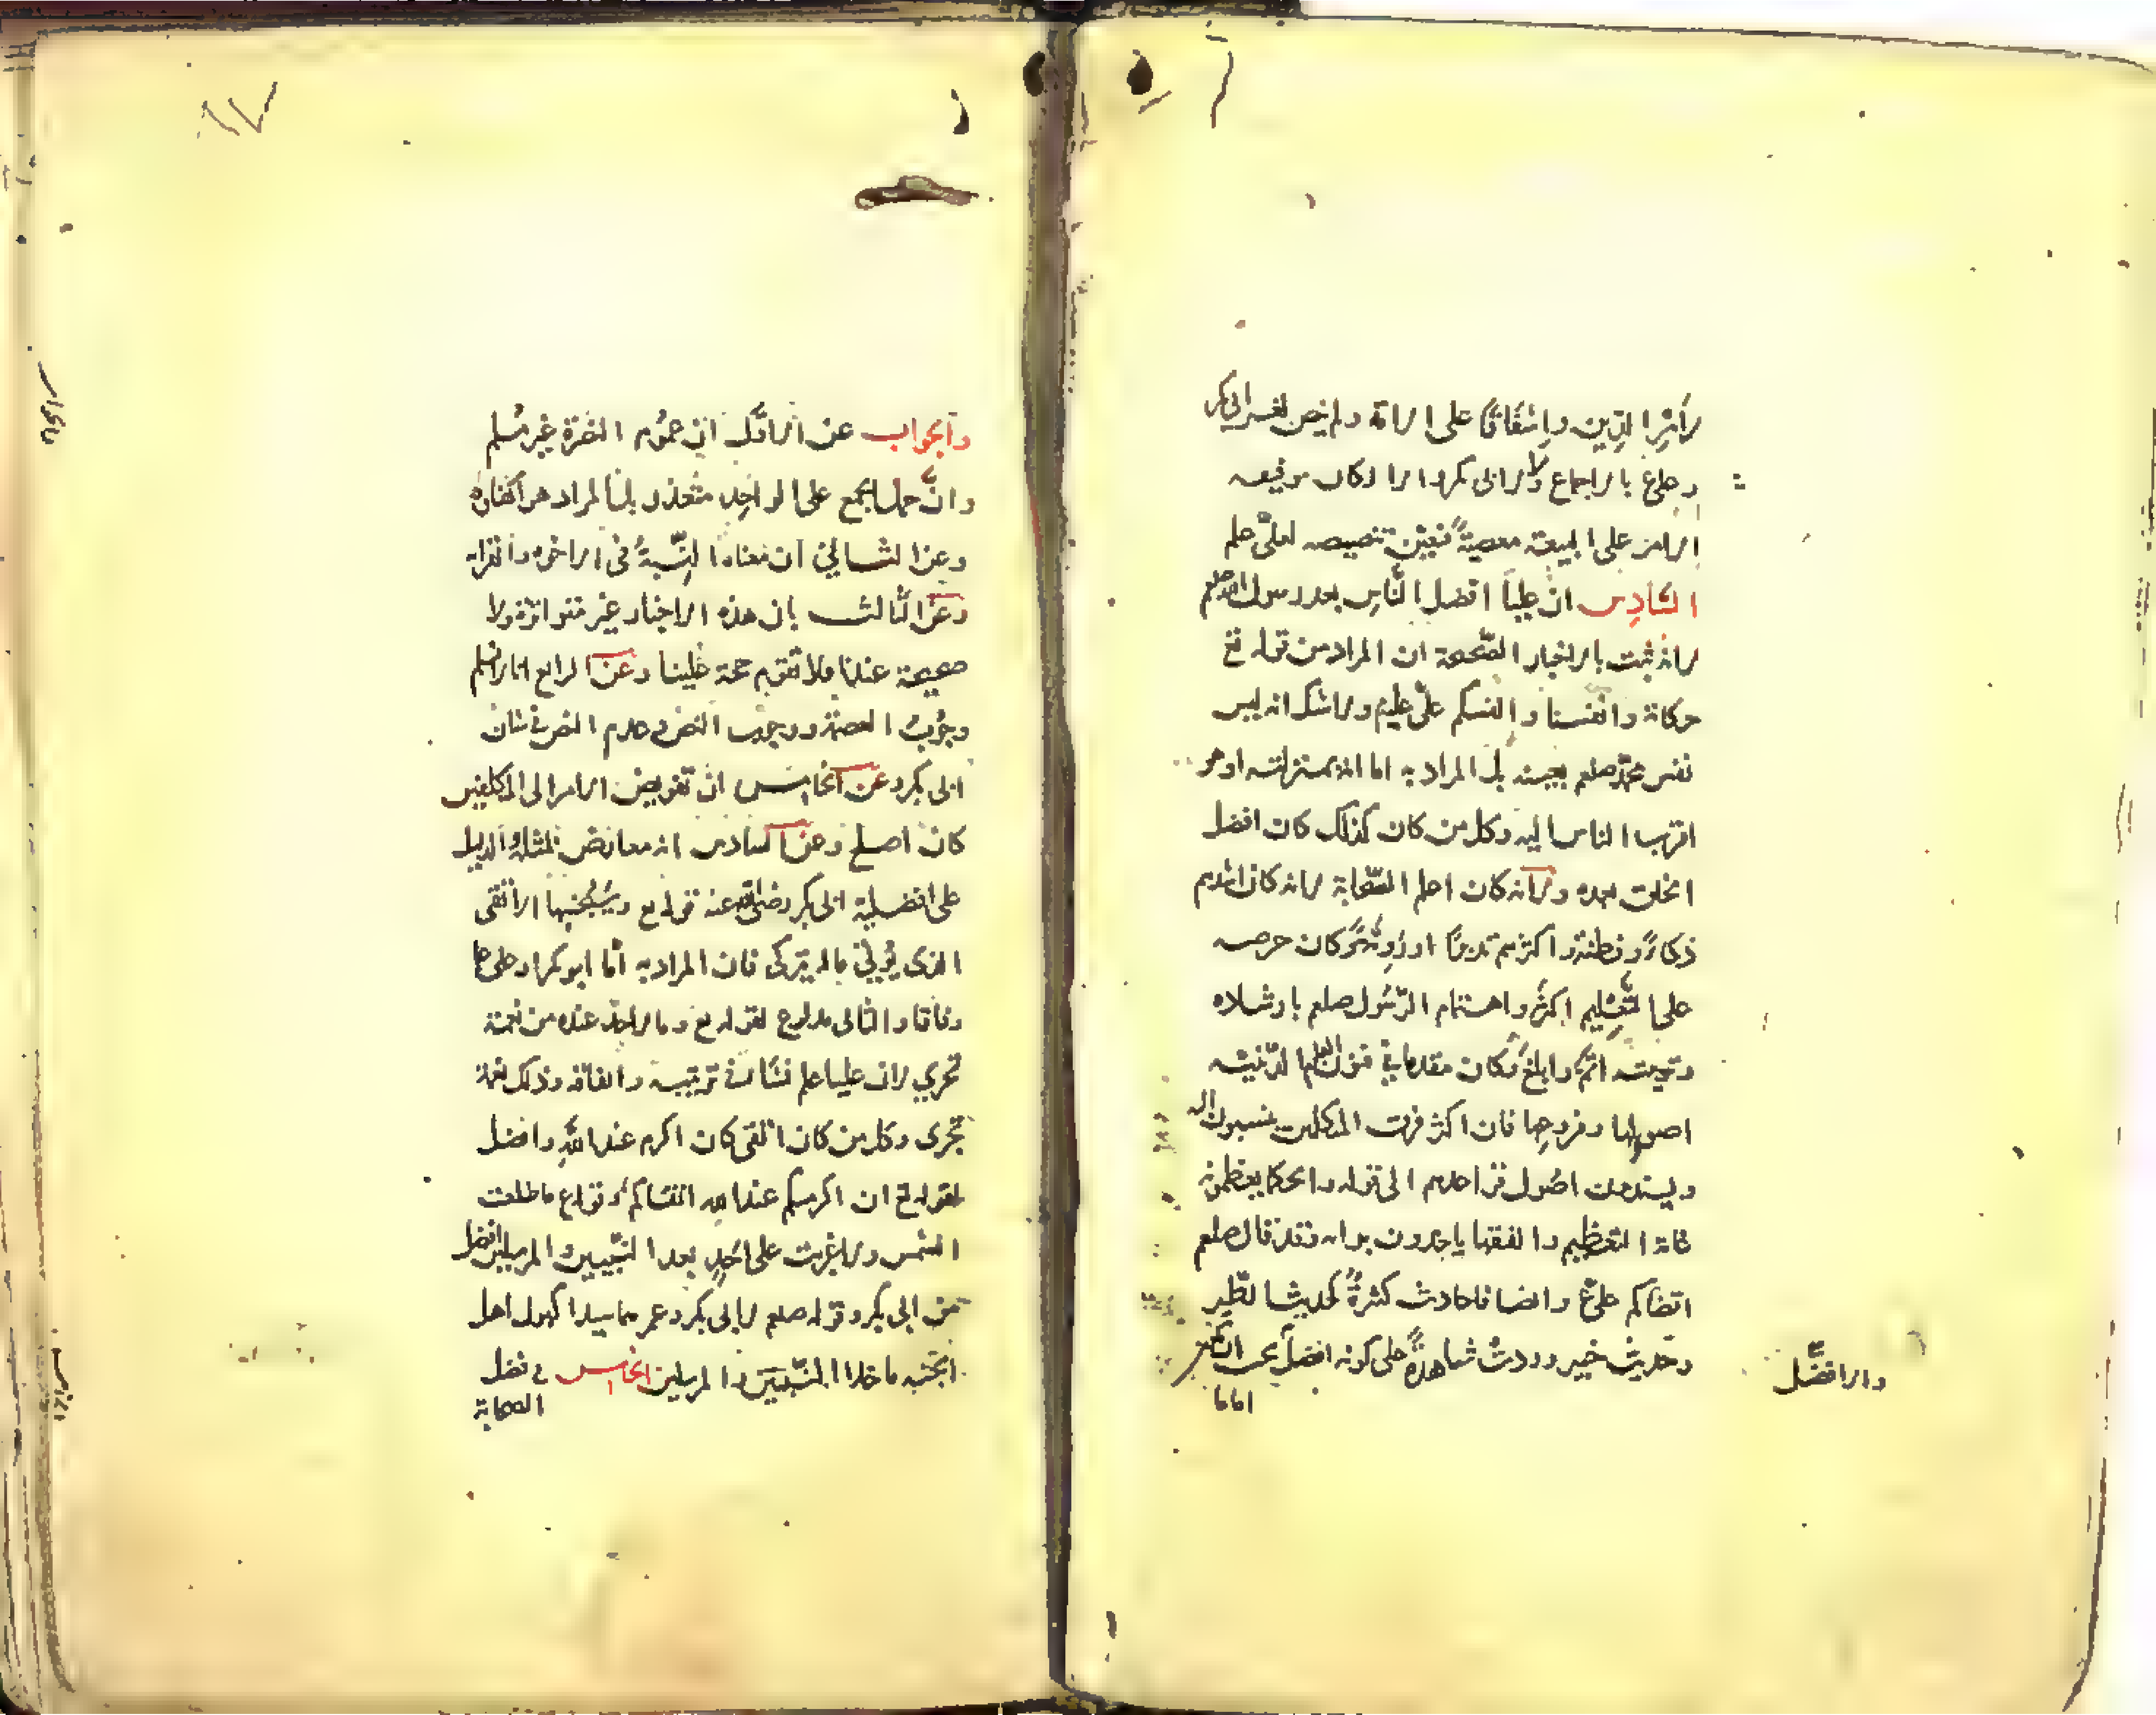 لأمر الدين وإشفاقا على الأمة ولم ينص لغير أبي بكر
وعلي بالإجماع ولا لأبي بكر وإلا لكان توقيفه
الأمر على البيعة معصية فتعين تنصيصه لعلي علم
السادس أن عليا أفضل الناس بعد رسول الله صلعم
لأنه ثبت بالأخبار الصحيحة ان المراد من قوله تع
حكاية وأنفسنا وأنفسكم علي عليم ولا شك انه ليس
نفس محمد صلعم بعينه بل المراد به اما انه بمنزلته او هو
اقرب الناس اليه وكل من كان كذلك كان افضل
الخلق بعده ولأنه كان اعلم الصحابة لأنه كان اشدهم
ذكاء وفطنة وأكثرهم تدبرا وروية وكان حرصه
على التعليم اكثر واهتمام الرسول صلعم بارشاده
وتربيته اتم وابلغ وكان مقدما في فنون العلوم الدينية
اصولها وفروعها فان اكثر فرق المتكلمين ينسبون اليه
ويسندون اصول قواعدهم الى قوله والحكما يعظمونه
غاية التعظيم والفقها ياخذون برايه وقد قال صلعم
اقضاكم علي وايضا فاحاديث كثيرة كحديث الطير
وحديث خيبر وردت شاهدة على كونه افضل
والافضل
اماما
والجواب عن الأول ان عموم النصرة غير مسلم
وان حمل الجمع على الواحد متعذر بل المراد هو اكفاؤه
وعن الثاني ان معناه النسبة في الأخوة والقرابة
وعن الثالث بان هذه الأخبار غير متواترة ولا
صحيحة عندنا فلا تقوم حجة علينا وعن الرابع انا لا نسلم
وجوب العصمة ووجوب النص وعدم النص في شان
ابي بكر وعن الخامس ان تفويض الأمر الى المكلفين
كان اصلح وعن السادس انه معارض بمثله والدليل
على افضلية ابي بكر رضي الله عنه قوله تع وسيجنبها الأتقى
الذي يؤتي ماله يتزكى فان المراد به اما ابو بكر او علي
وفاقا والثاني مدفوع لقوله تع وما لأحد عنده من نعمة
تجزى لأن عليا علم نشأ في تربيته وانفاقه وذلك نعمة
تجزى وكل من كان اتقى كان اكرم عند الله وافضل
لقوله تع ان اكرمكم عند الله اتقاكم وقوله ع ما طلعت
الشمس ولا غربت على احد بعد النبيين والمرسلين افضل
من ابي بكر وقوله صلعم لأبي بكر وعمر هما سيدا كهول اهل
الجنة ما خلا النبيين والمرسلين الخامس في فضل
الصحابة